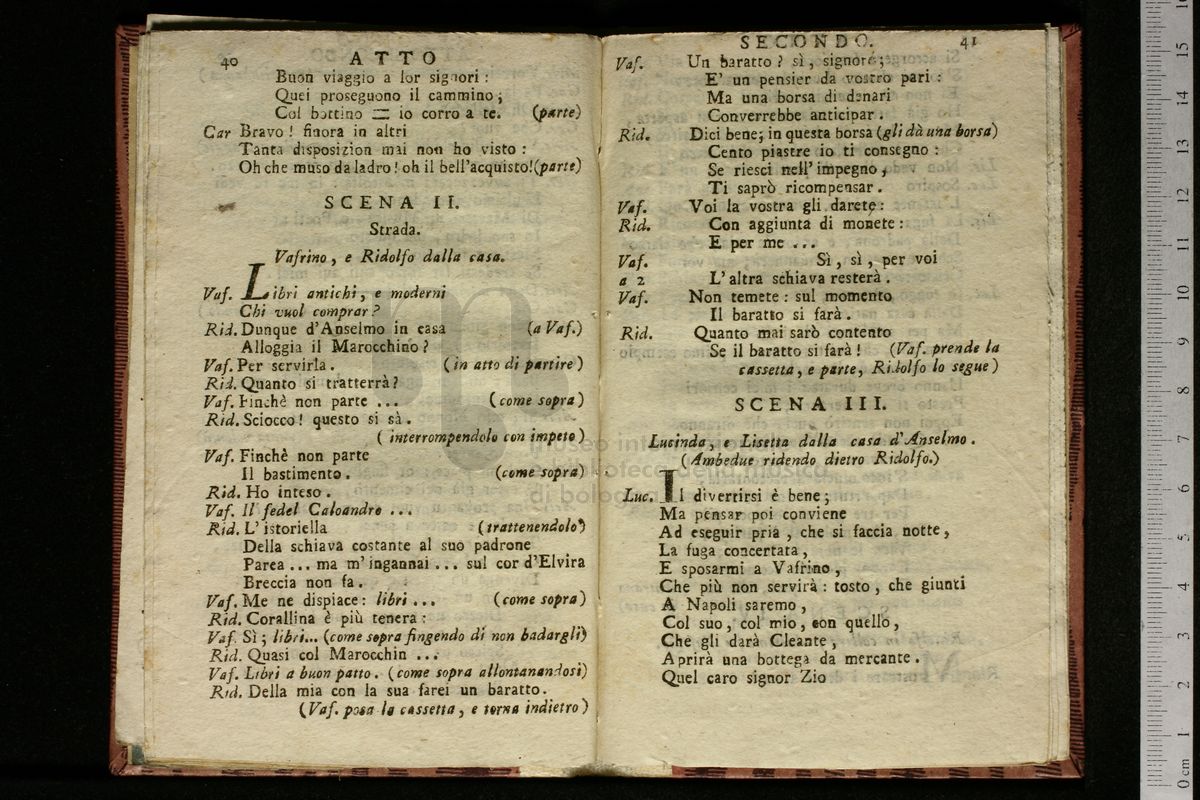 40 ATTO
Buon viaggio a lor signori :
Quei proseguono il cammino ;
Col bottino = io corro a te. (parte)
Car Bravo ! finora in altri
Tanta disposizion mai non ho visto :
Oh che muso da ladro ! oh il bell'acquisto! (parte)
SCENA II.
Strada.
Vafrino, e Ridolfo dalla casa.
Vaf. Libri antichi, e moderni
Chi vuol comprar?
Rid. Dunque d'Anselmo in casa (a Vaf.)
Alloggia il Marocchino?
Vaf. Per servirla. (in atto di partire)
Rid. Quanto si tratterrà?
Vaf. Finchè non parte ... (come sopra)
Rid. Sciocco! questo si sà.
(interrompendolo con impeto)
Vaf. Finchè non parte
Il bastimento. (come sopra)
Rid. Ho inteso.
Vaf. Il fedel Caloandro ...
Rid. L' istoriella (trattenendolo)
Della schiava costante al suo padrone
Parea ... ma m' ingannai ... sul cor d'Elvira
Breccia non fa.
Vaf. Me ne dispiace: libri ... (come sopra)
Rid. Corallina è più tenera :
Vaf. Sì ; libri... (come sopra fingendo di non badargli)
Rid. Quasi col Marocchin ...
Vaf. Libri a buon patto. (come sopra allontanandosi)
Rid. Della mia con la sua farei un baratto.
(Vaf. posa la cassetta, e torna indietro)
SECONDO. 41
Vaf. Un baratto? sì, signore ;
E' un pensier da vostro pari :
Ma una borsa di denari
Converrebbe anticipar.
Rid. Dici bene; in questa borsa (gli dà una borsa)
Cento piastre io ti consegno :
Se riesci nell' impegno,
Ti saprò ricompensar.
Vaf. Voi la vostra gli darete:
Rid. Con aggiunta di monete:
E per me ...
Vaf. Sì, sì, per voi
a 2 L'altra schiava resterà.
Vaf. Non temete : sul momento
Il baratto si farà.
Rid. Quanto mai sarò contento
Se il baratto si farà! (Vaf. prende la
cassetta, e parte, Ridolfo lo segue)
SCENA III.
Lucinda, e Lisetta dalla casa d'Anselmo.
(Ambedue ridendo dietro Ridolfo.)
Luc. Il divertirsi è bene;
Ma pensar poi conviene
Ad eseguir pria, che si faccia notte,
La fuga concertata,
E sposarmi a Vafrino,
Che più non servirà : tosto, che giunti
A Napoli saremo,
Col suo, col mio, con quello,
Che gli darà Cleante,
Aprirà una bottega da mercante.
Quel caro signor Zio
museo
biblioteca della musica
di bologna
0 cm 1 2 3 4 5 6 7 8 9 10 11 12 13 14 15